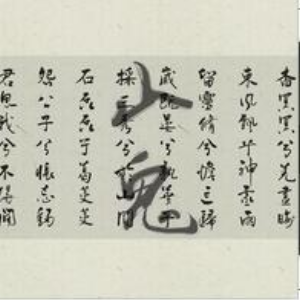 山鬼
杳冥冥兮羌晝晦
東風飄兮神靈雨
留靈脩兮憺忘歸
歲既晏兮孰華予
採三秀兮於山間
石磊磊兮葛蔓蔓
怨公子兮悵忘歸
君思我兮不得閒